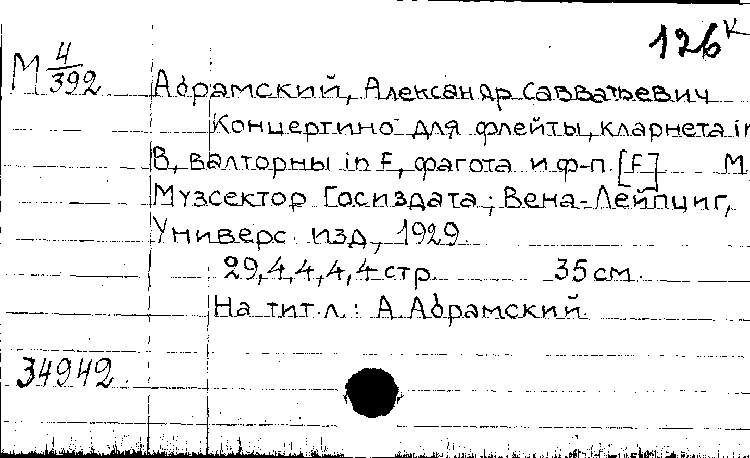 126к
М 4/392
Абрамский, Александр Савватьевич
Концертино для флейты, кларнета in
B, валторны in F, фагота и ф-п. [F] М
Музсектор Госиздата; Вена-Лейпциг,
Универс. изд., 1929.
29,4,4,4,4 стр. 35 см.
На тит.л.: А. Абрамский
34942.